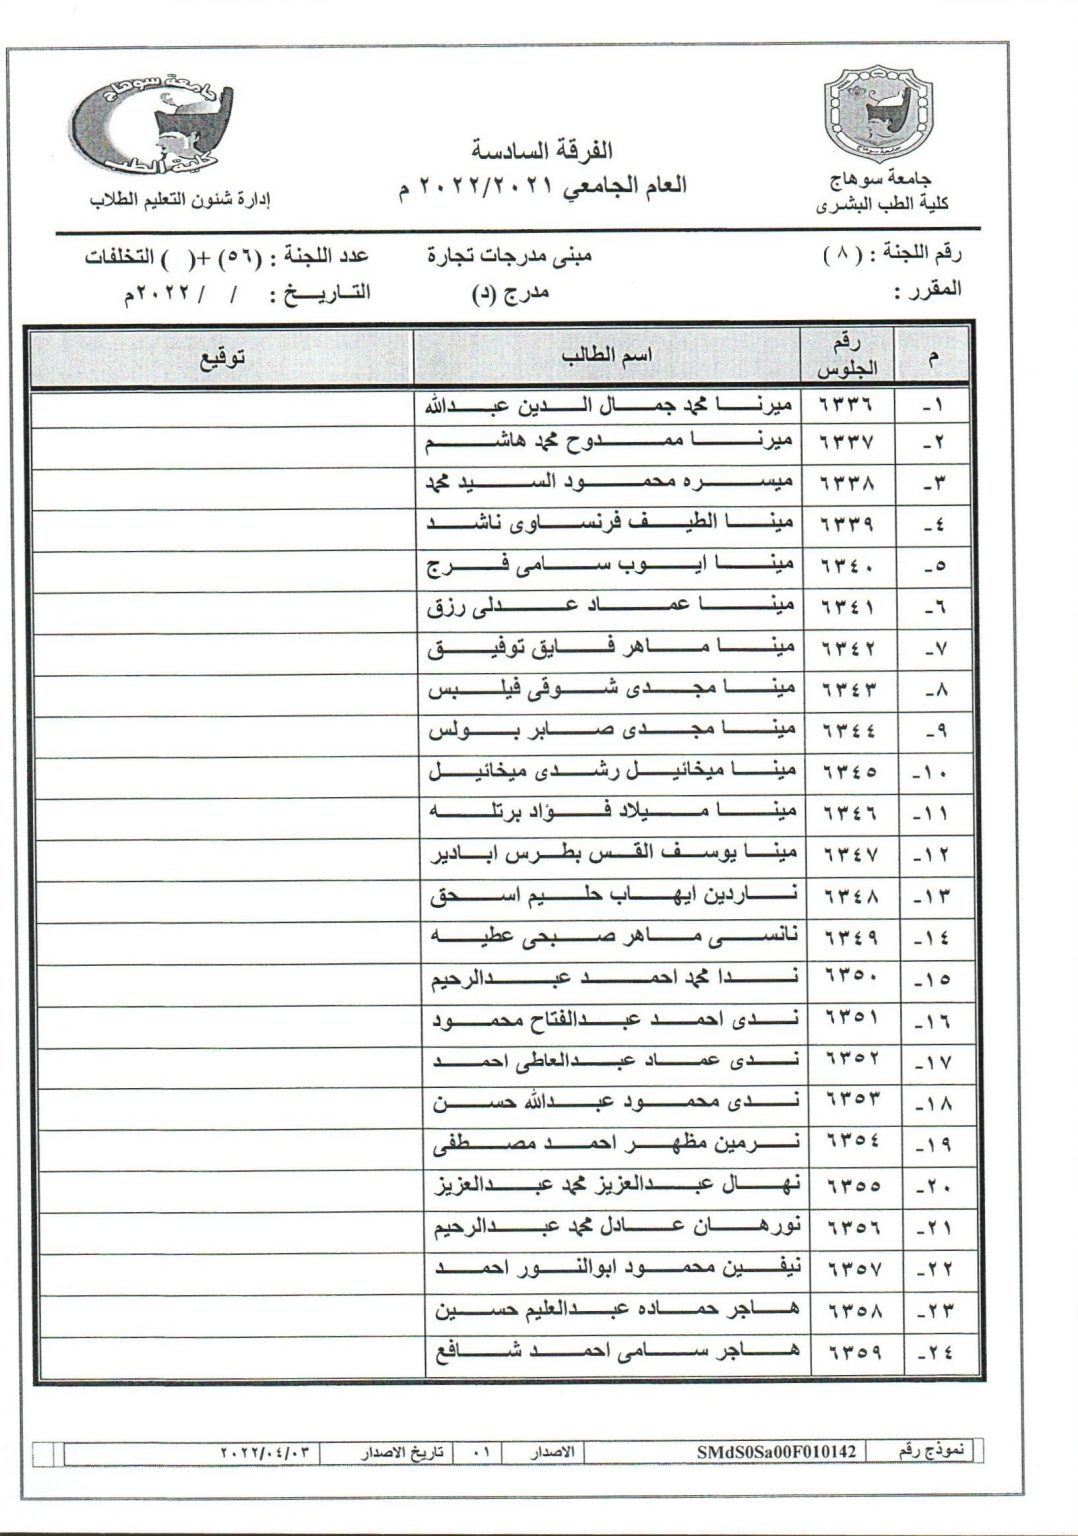 جامعة سوهاج
كلية الطب
جامعة سوهاج
كلية الطب البشرى
الفرقة السادسة
العام الجامعي ٢٠٢٢/٢٠٢١ م
إدارة شئون التعليم الطلاب
رقم اللجنة : (٨) مبنى مدرجات تجارة عدد اللجنة : (٥٦) +( ) التخلفات
المقرر : مدرج (د) التاريخ : / / ٢٠٢٢م
م رقم الجلوس اسم الطالب توقيع
١- ٦٣٣٦ ميرنا محمد جمال الدين عبدالله
٢- ٦٣٣٧ ميرنا ممدوح محمد هاشم
٣- ٦٣٣٨ ميسره محمود السيد محمد
٤- ٦٣٣٩ مينا الطيف فرنساوى ناشد
٥- ٦٣٤٠ مينا ايوب سامى فرج
٦- ٦٣٤١ مينا عماد عدلى رزق
٧- ٦٣٤٢ مينا ماهر فايق توفيق
٨- ٦٣٤٣ مينا مجدى شوقى فيلبس
٩- ٦٣٤٤ مينا مجدى صابر بولس
١٠- ٦٣٤٥ مينا ميخائيل رشدى ميخائيل
١١- ٦٣٤٦ مينا ميلاد فؤاد برتله
١٢- ٦٣٤٧ مينا يوسف القس بطرس ابادير
١٣- ٦٣٤٨ ناردين ايهاب حليم اسحق
١٤- ٦٣٤٩ نانسى ماهر صبحى عطيه
١٥- ٦٣٥٠ ندا محمد احمد عبدالرحيم
١٦- ٦٣٥١ ندى احمد عبدالفتاح محمود
١٧- ٦٣٥٢ ندى عماد عبدالعاطى احمد
١٨- ٦٣٥٣ ندى محمود عبدالله حسن
١٩- ٦٣٥٤ نرمين مظهر احمد مصطفى
٢٠- ٦٣٥٥ نهال عبدالعزيز محمد عبدالعزيز
٢١- ٦٣٥٦ نورهان عادل محمد عبدالرحيم
٢٢- ٦٣٥٧ نيفين محمود ابوالنور احمد
٢٣- ٦٣٥٨ هاجر حماده عبدالعليم حسين
٢٤- ٦٣٥٩ هاجر سامى احمد شافع
نموذج رقم SMdS0Sa00F010142 الاصدار ٠١ تاريخ الاصدار ٢٠٢٢/٠٤/٠٣